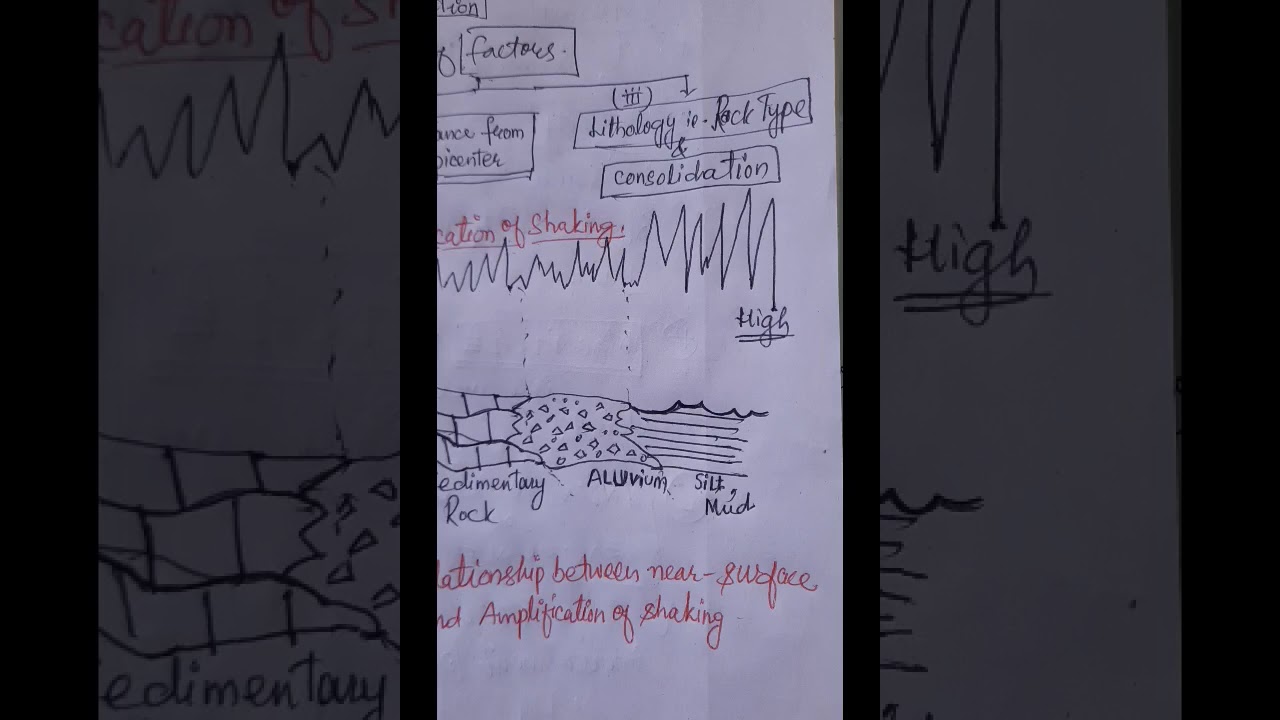 tion
of factors.
(iii)
Lithology ie. Rock Type
&
consolidation
ance from
icenter
cation of Shaking.
High
edimentary
Rock
ALUVium
Silt,
Mud
lationship between near-surface
nd Amplification of shaking
cation of S
edimentary
High